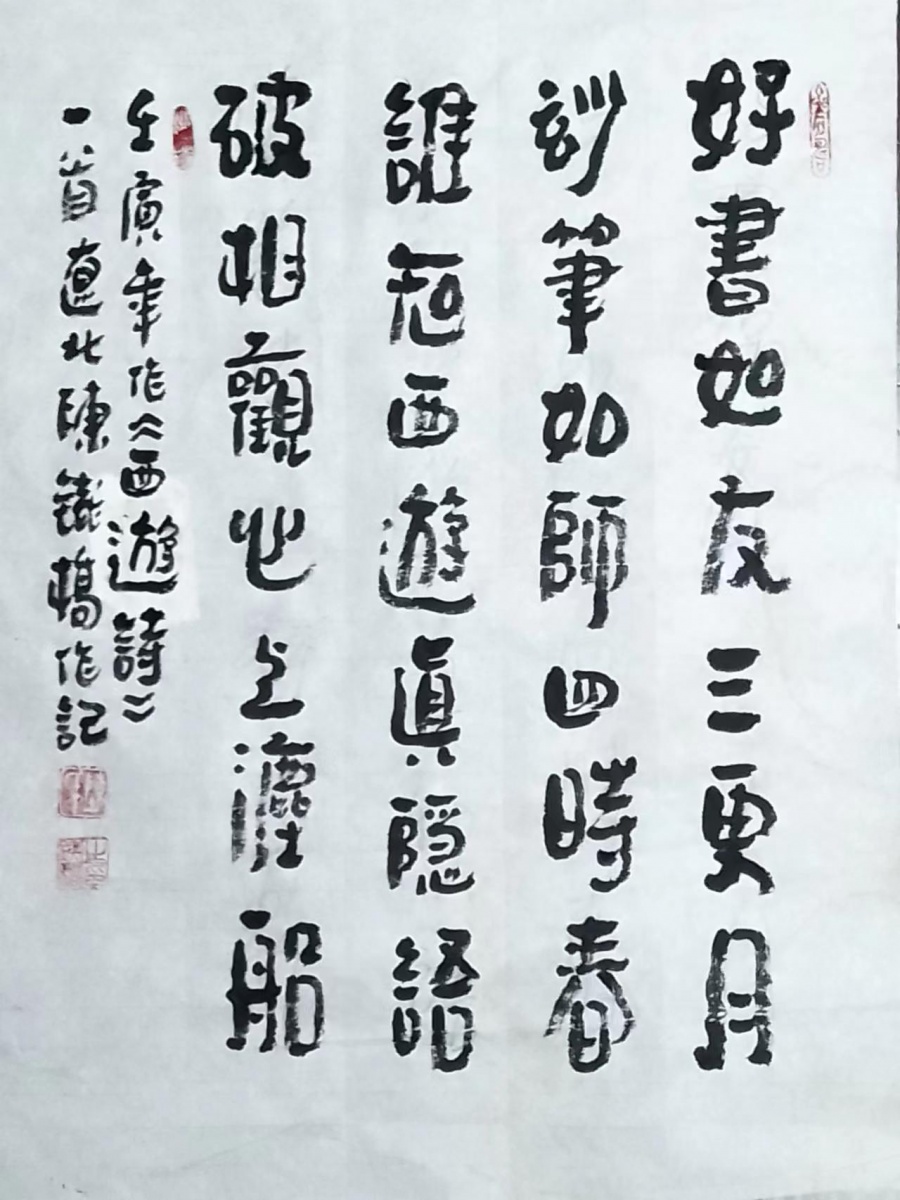 好書如友三更月
妙筆如師四時春
誰知西遊真隱語
破相觀心上法船
壬寅年作《西遊詩》
一首遼北陳鐵橋作記